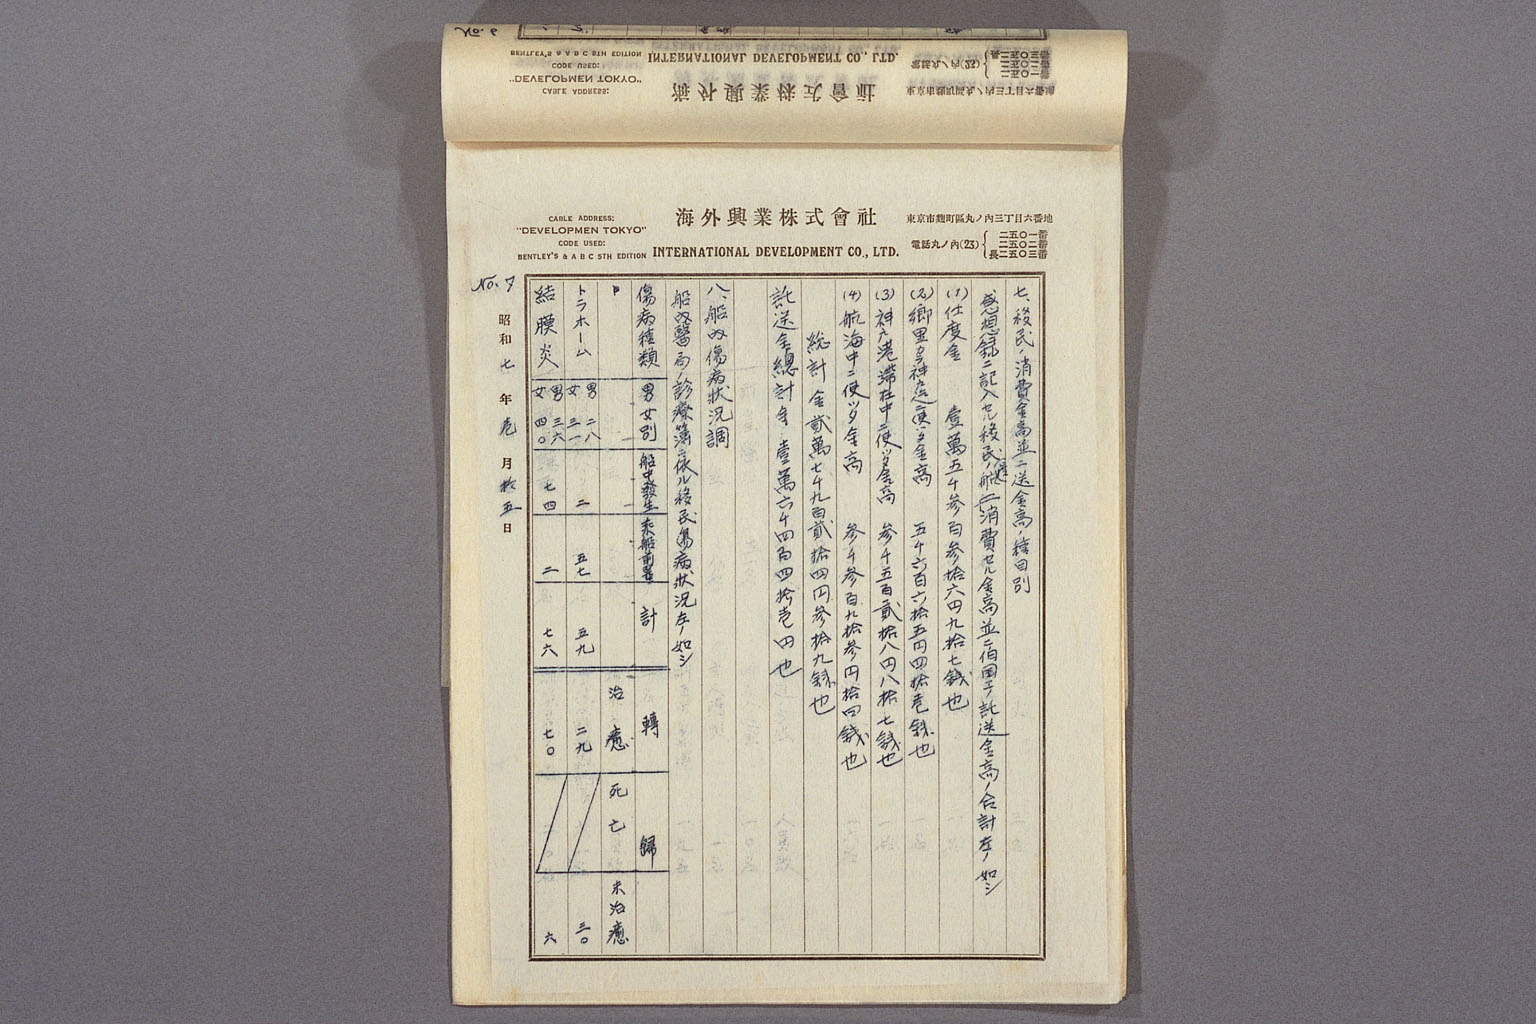 CABLE ADDRESS:
"DEVELOPMEN TOKYO"
CODE USED:
BENTLEY'S & A B C 5TH EDITION
海外興業株式會社
INTERNATIONAL DEVELOPMENT CO., LTD.
東京市麹町區丸ノ內三丁目六番地
電話丸ノ內(23)
二五〇一番
二五〇二番
長二五〇三番
七、移民ノ消費金高並ニ送金高ノ種目別
感想錄ニ記入セル移民ノ消費セル金高並ニ伯国エノ託送金高ノ合計左ノ如シ
(1)仕度金 壹萬五千参百参拾六円九拾七錢也
(2)郷里カラ神戸迄ニ使ッタ金高 五千六百六拾五円四拾壱錢也
(3)神戸港滞在中ニ使ッタ金高 参千五百貳拾八円八拾七錢也
(4)航海中ニ使ッタ金高 参千参百九拾参円拾四錢也
総計金貳萬七千九百貳拾四円参拾九錢也
託送金總計金壹萬六千四百四拾壱円也
八、船内傷病状況調
船内醫局ノ診療簿ニ依ル移民傷病状況左ノ如シ
傷病種類 男女別 船中發生 乗船前ヨリ 計 轉歸
治癒 死亡 未治癒
トラホーム 男 二八 女 三一 二 五七 五九 二九 三〇
結膜炎 男 三六 女 四〇 七四 二 七六 七〇 六
No. 7
昭和七年壱月拾五日
CABLE ADDRESS:
"DEVELOPMEN TOKYO"
CODE USED:
BENTLEY'S & A B C 5TH EDITION
INTERNATIONAL DEVELOPMENT CO., LTD.
No. 6